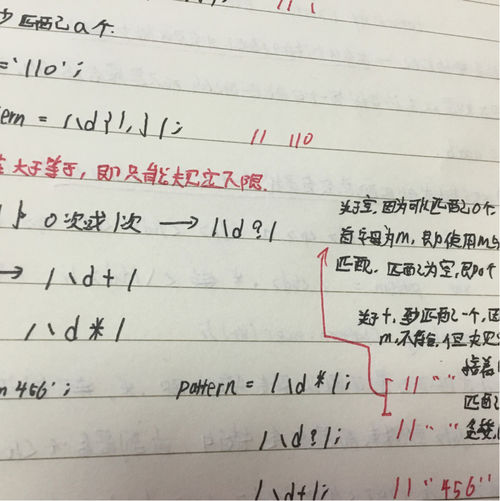 少匹配a个.
='110';
ern = /\d{1,}/;
// 110
大于等于,即只能规定下限.
0次或1次 → /\d?/
→ /\d+/
/\d*/
关于空,因为可以匹配0个.
首字母为m,即使用m与
匹配. 匹配为空,即0个
关于+,至少匹配一个,因
m,不符合,但
接着
匹配
m 456';
pattern = /\d*/; // ""
/\d?/; // ""
/\d+/; // "456"